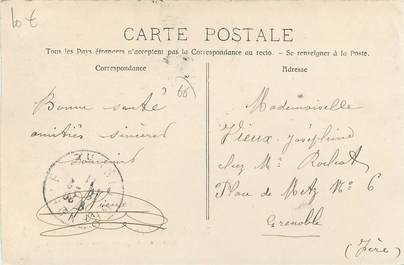 lot
CARTE POSTALE
Tous les Pays étrangers n'acceptent pas la Correspondance au recto. – Se renseigner à la Poste.
Correspondance
Adresse
66
Bonne santé
amitiés sincères
Vieux
Mademoiselle
Vieux Joséphine
chez Mr Rochat
Place de Metz No 6
Grenoble
(Isère)